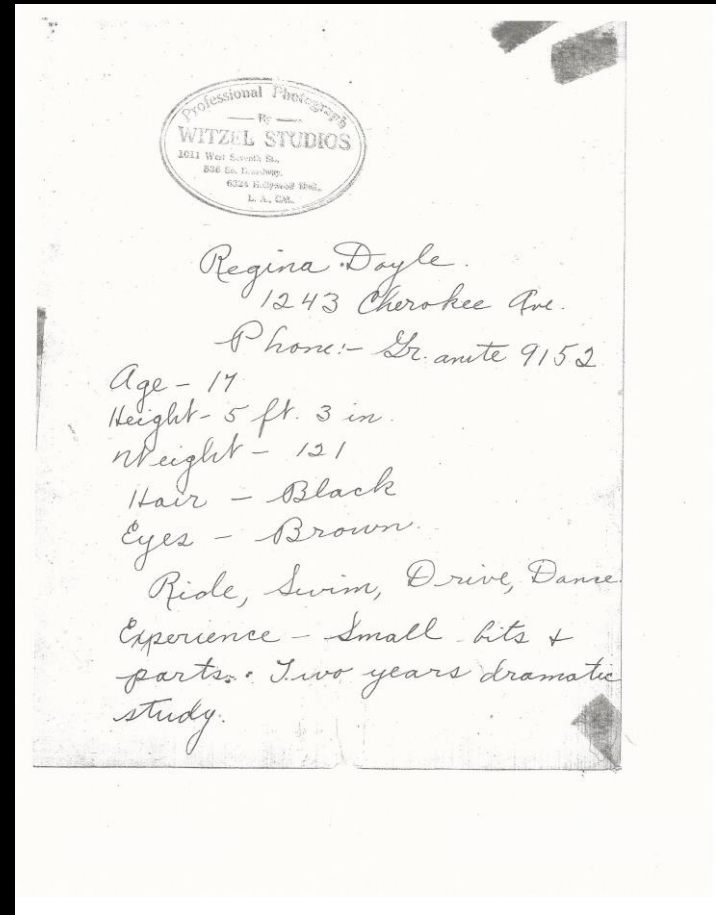 Professional Photograph
By
WITZEL STUDIOS
1011 West Seventh St.,
836 So. Broadway,
6324 Hollywood Blvd.,
L. A., CAL.
Regina Doyle.
1243 Cherokee Ave.
Phone:- Gr. anite 9152
Age - 17
Height - 5 ft. 3 in.
Weight - 121
Hair - Black
Eyes - Brown.
Ride, Swim, Drive, Dance.
Experience - Small bits &
parts. Two years dramatic
study.